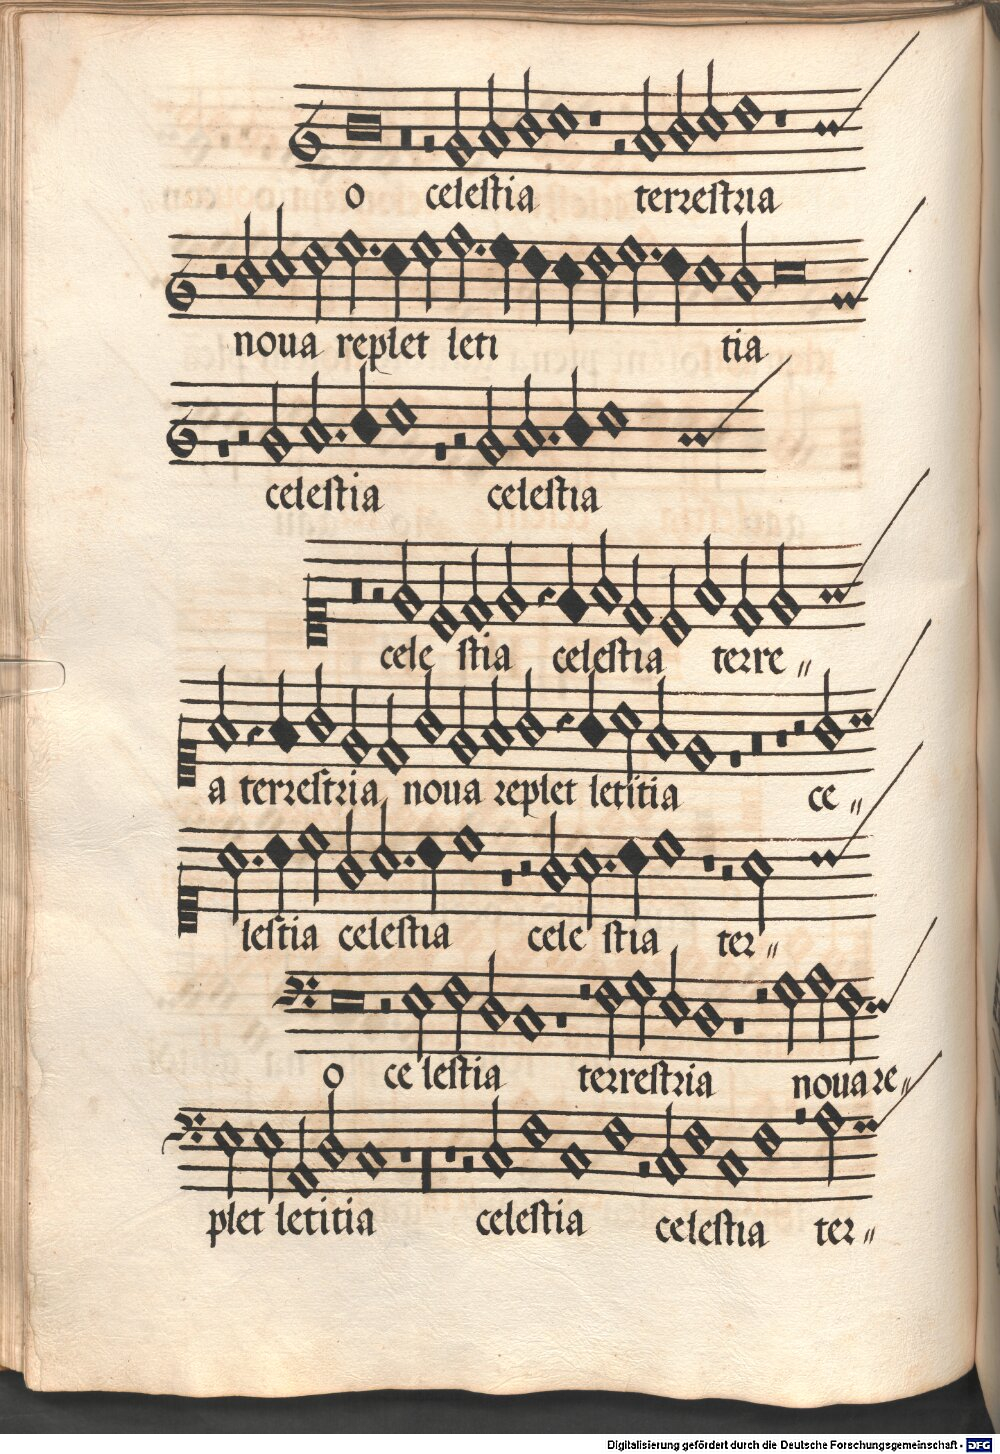 o celestia terrestria
noua replet leti tia
celestia celestia
cele stia celestia terre〃
a terrestria noua replet letitia ce〃
lestia celestia cele stia ter〃
o ce lestia terrestria noua re〃
plet letitia celestia celestia ter〃
Digitalisierung gefördert durch die Deutsche Forschungsgemeinschaft - DFG